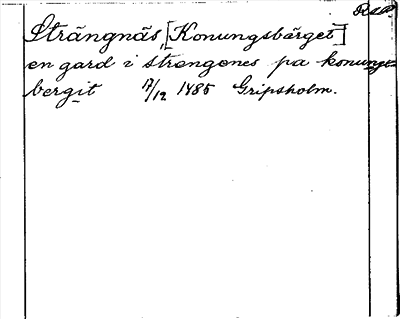 Strängnäs, [Konungsbärget]
en gard i strengenes pa konungx=
bergit 17/12 1485 Gripsholm.